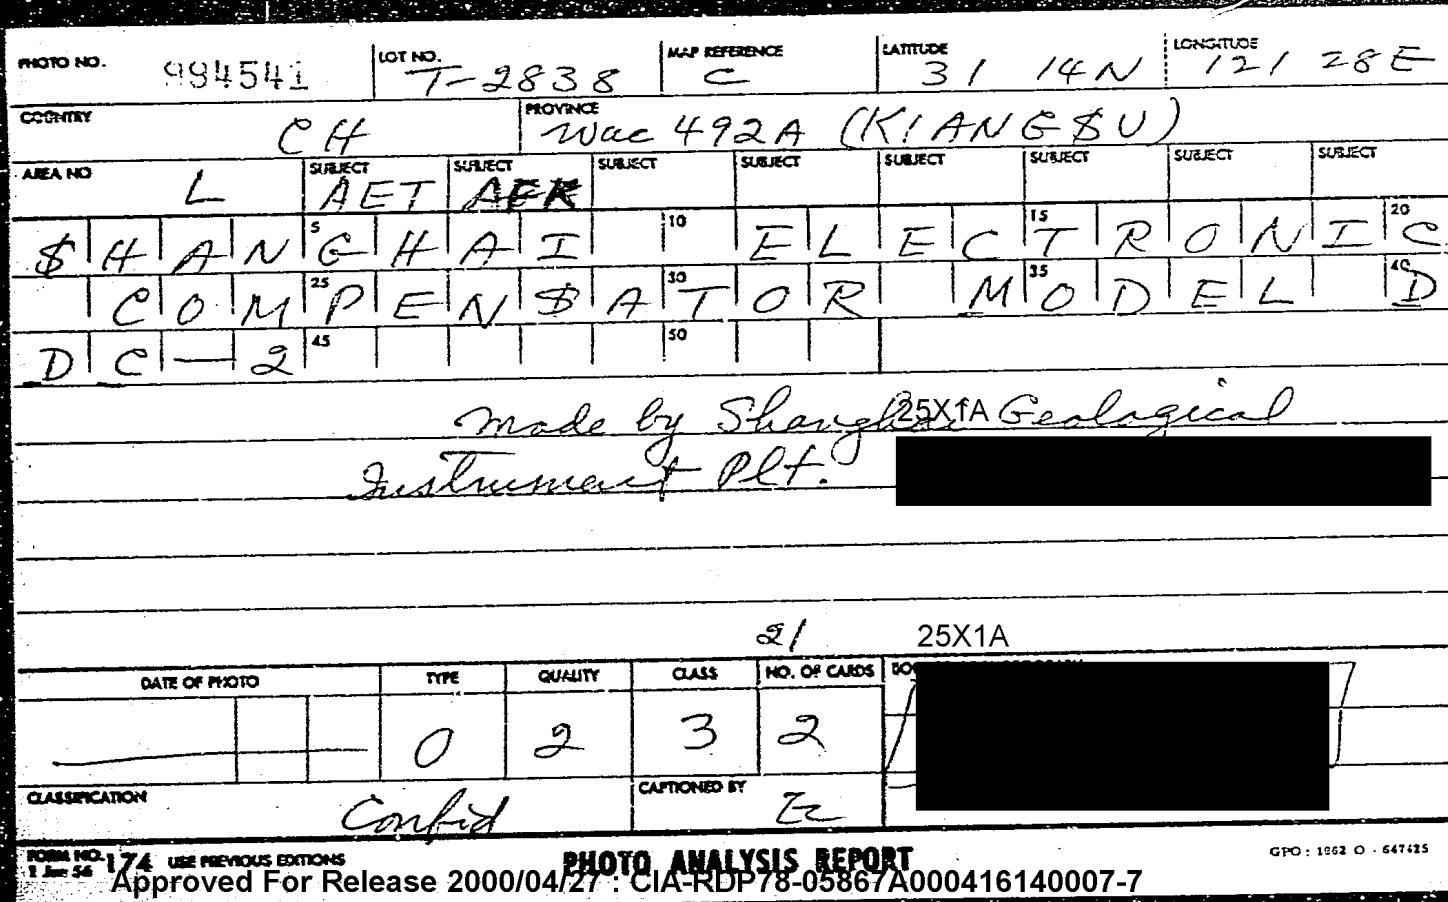 PHOTO NO. 994541 LOT NO. T-2838 MAP REFERENCE C LATITUDE 31 14N LONGITUDE 121 28E
COUNTRY CH PROVINCE Wac 492A (KIANG$U)
AREA NO L SUBJECT AET SUBJECT AER SUBJECT SUBJECT SUBJECT SUBJECT SUBJECT SUBJECT
$HANGHAI ELECTRONIC 5 10 15 20
COMPEN$ATOR MODEL D 25 30 35 40
DC-2 45 50
Made by Shanghai Geological 25X1A
Instrument Plt.
21 25X1A
DATE OF PHOTO TYPE QUALITY CLASS NO. OF CARDS
0 2 3 2
CLASSIFICATION Confid CAPTIONED BY
FORM NO. 174 USE PREVIOUS EDITIONS PHOTO ANALYSIS REPORT GPO : 1962 O - 647425
1 Jun 56
Approved For Release 2000/04/27 : CIA-RDP78-05867A000416140007-7